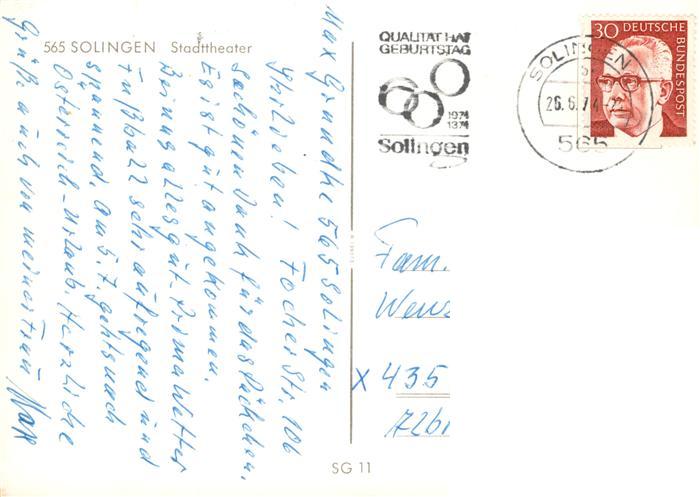 565 SOLINGEN Stadttheater
Max Grundke 565 Solingen
Ihr Lieben! Focher Str. 106
Schönen Dank für das Päckchen.
Es ist gut angekommen.
Bei uns alles gut. Prima Wetter
Fußball sehr aufregend und
spannend. Am 5.7. geht's nach
Österreich-Urlaub. Herzliche
Grüße auch von meiner Frau Max
QUALITÄT HAT
GEBURTSTAG
1974
1374
Solingen
SOLINGEN
26.6.74
565
30 DEUTSCHE
BUNDESPOST
Fam.
Wens
x 435
Albi
SG 11